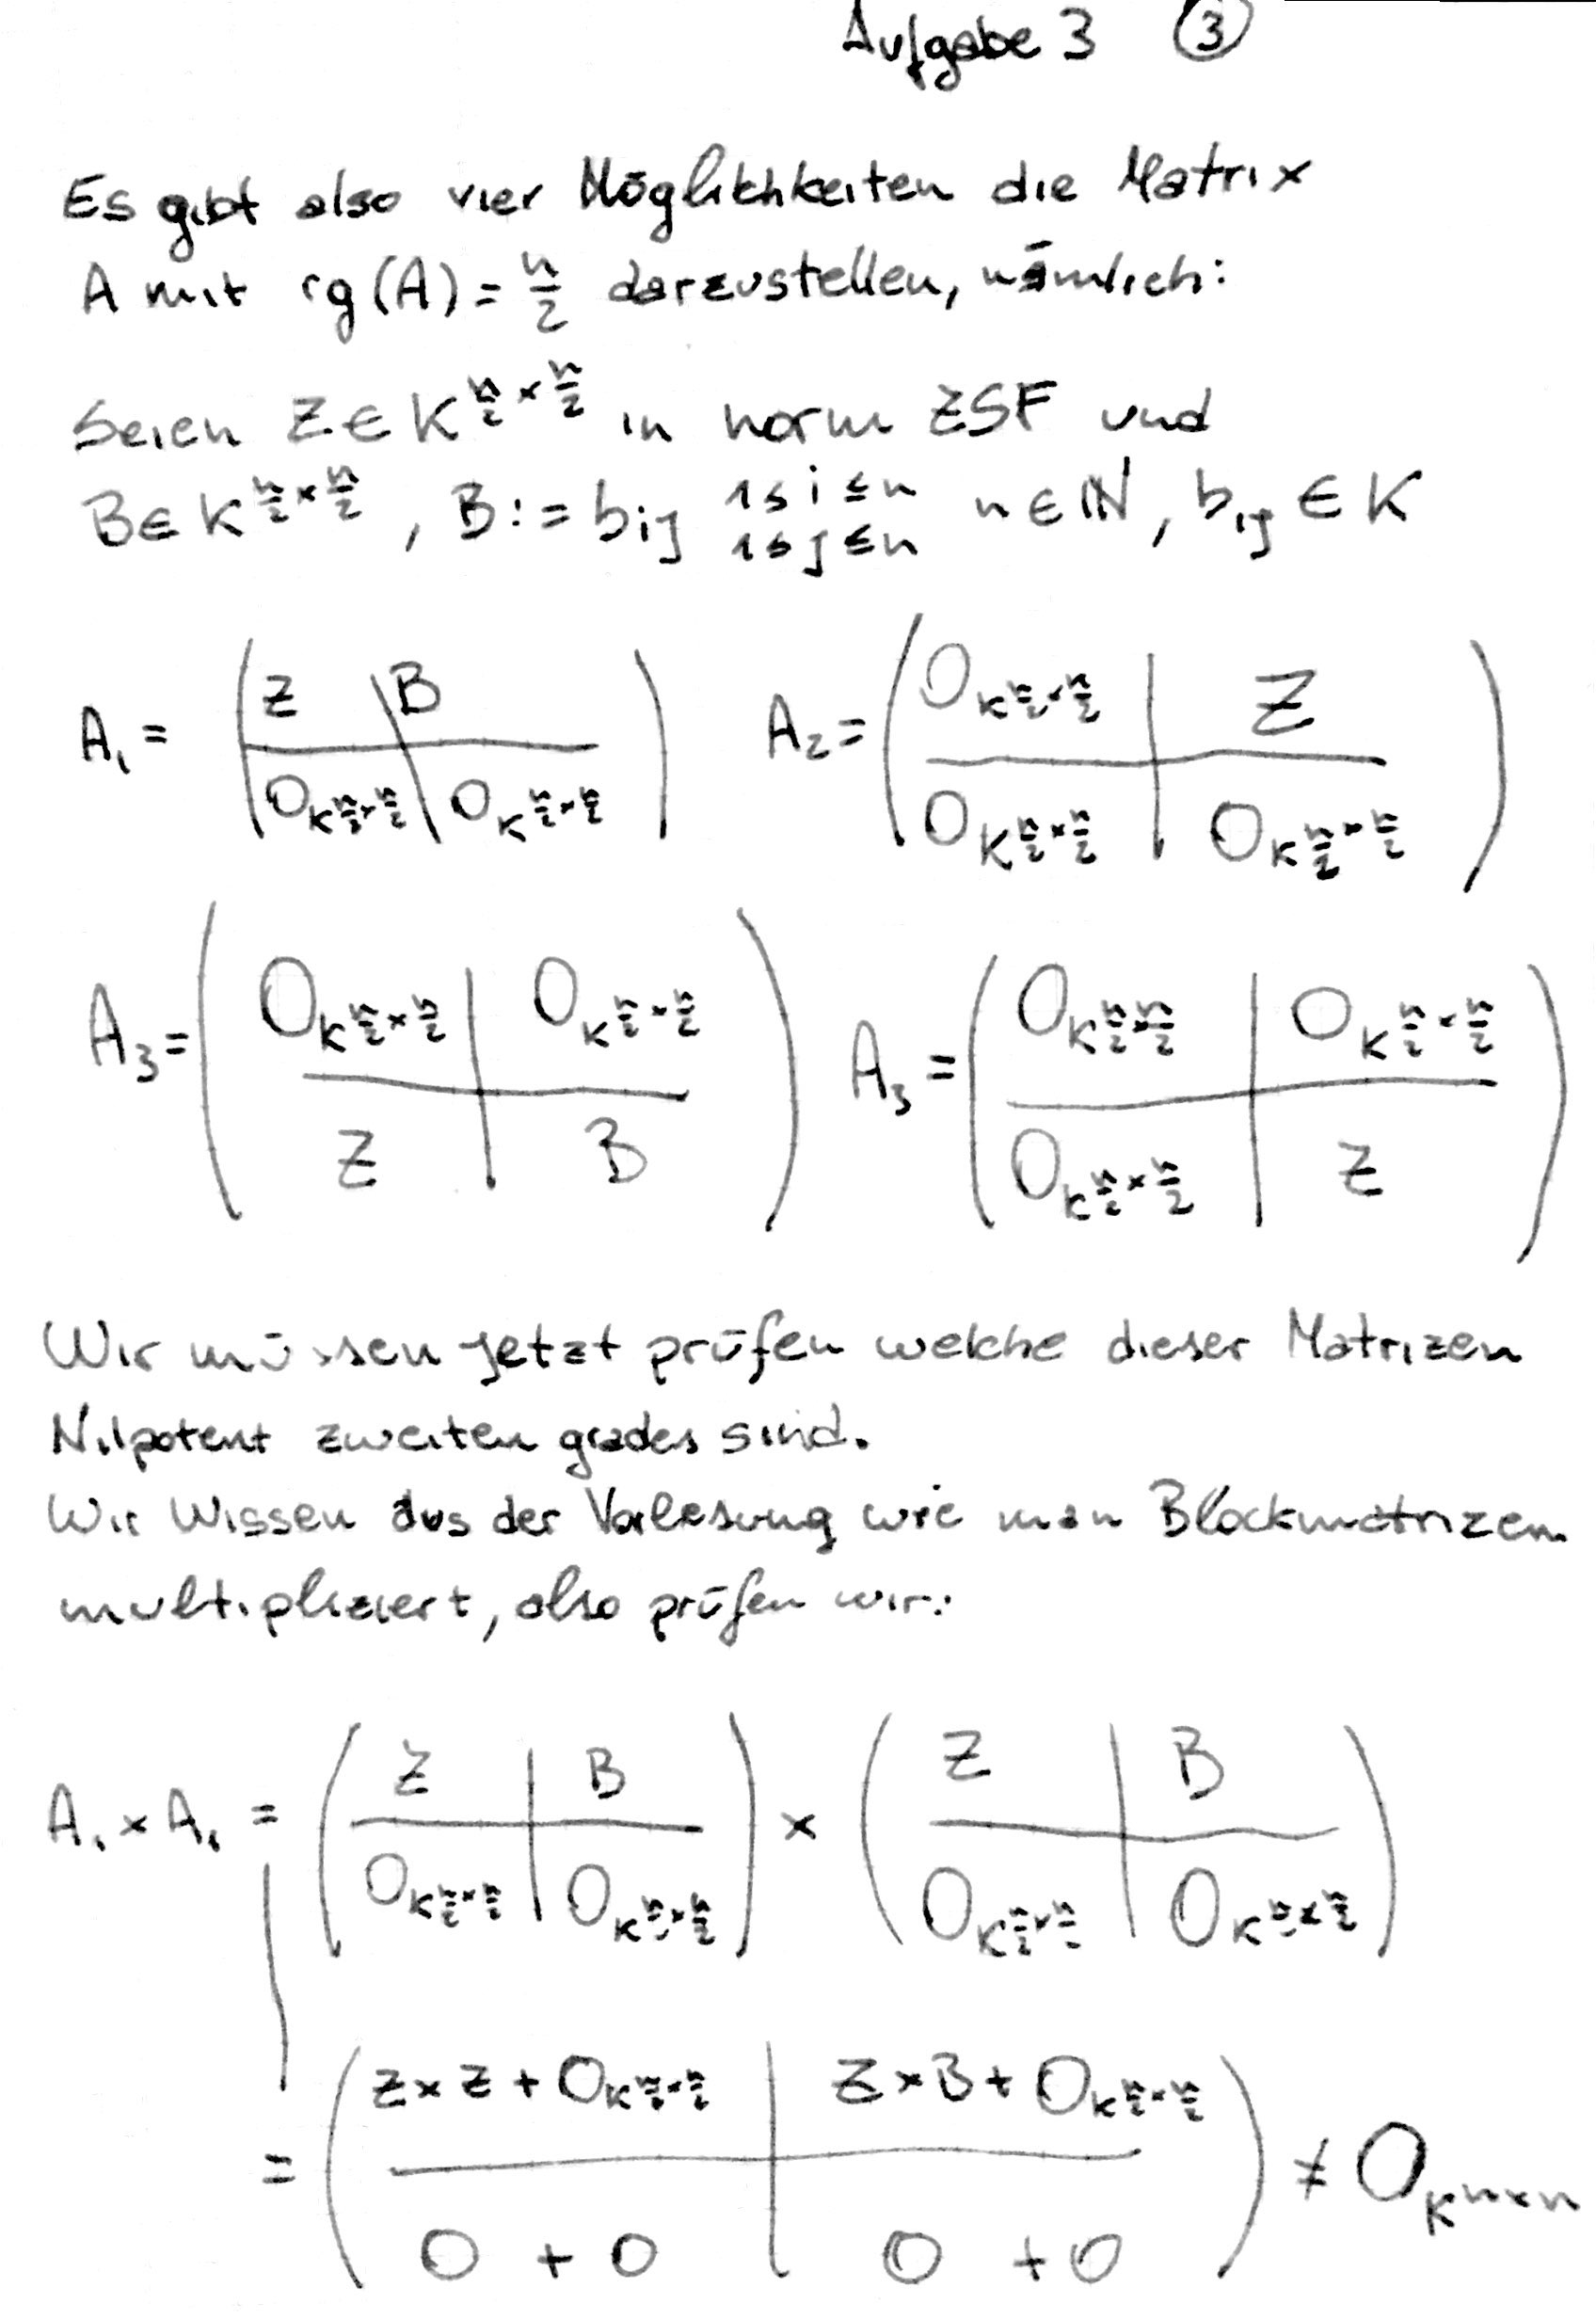 Aufgabe 3 ③
Es gibt also vier Möglichkeiten die Matrix
A mit rg(A) = n/2 darzustellen, nämlich:
Seien Z ∈ K^{n/2 × n/2} in norm ZSF und
B ∈ K^{n/2 × n/2}, B := b_{ij} 1 ≤ i ≤ n, 1 ≤ j ≤ n n ∈ ℕ, b_{ij} ∈ K
A_1 = ( Z | B ; 0_{K^{n/2 × n/2}} | 0_{K^{n/2 × n/2}} ) A_2 = ( 0_{K^{n/2 × n/2}} | Z ; 0_{K^{n/2 × n/2}} | 0_{K^{n/2 × n/2}} )
A_3 = ( 0_{K^{n/2 × n/2}} | 0_{K^{n/2 × n/2}} ; Z | B ) A_3 = ( 0_{K^{n/2 × n/2}} | 0_{K^{n/2 × n/2}} ; 0_{K^{n/2 × n/2}} | Z )
Wir müssen jetzt prüfen welche dieser Matrizen
Nilpotent zweiten grades sind.
Wir Wissen aus der Vorlesung wie man Blockmatrizen
multipliziert, also prüfen wir:
A_1 × A_1 = ( Z | B ; 0_{K^{n/2 × n/2}} | 0_{K^{n/2 × n/2}} ) × ( Z | B ; 0_{K^{n/2 × n/2}} | 0_{K^{n/2 × n/2}} )
= ( Z × Z + 0_{K^{n/2 × n/2}} | Z × B + 0_{K^{n/2 × n/2}} ; 0 + 0 | 0 + 0 ) ≠ 0_{K^{n×n}}